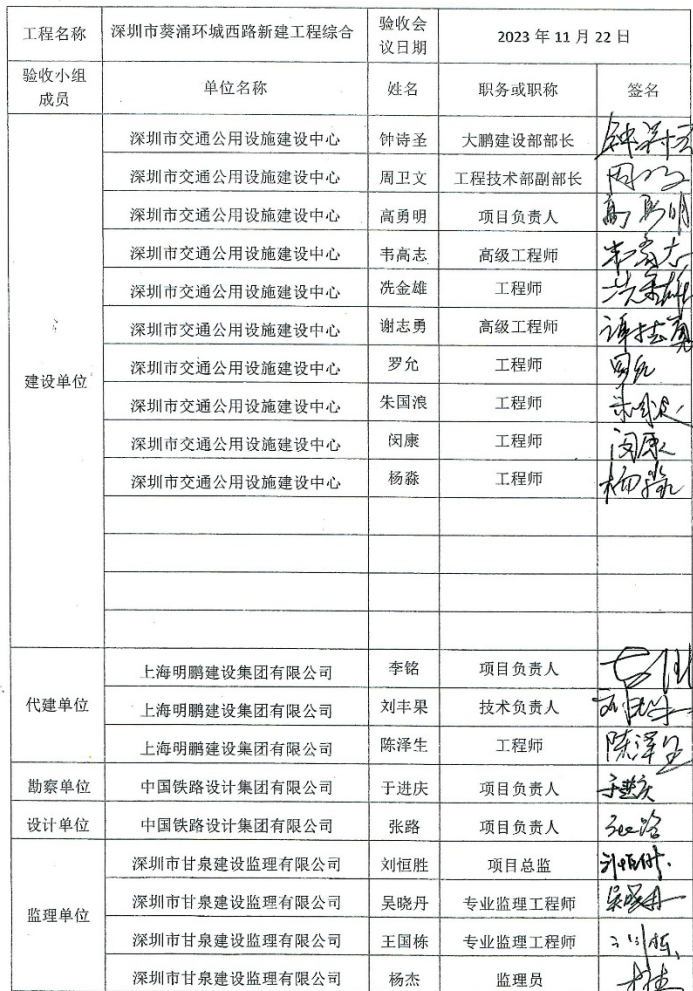 工程名称 深圳市葵涌环城西路新建工程综合 验收会议日期 2023 年 11 月 22 日
验收小组成员 单位名称 姓名 职务或职称 签名
建设单位
深圳市交通公用设施建设中心 钟诗圣 大鹏建设部部长
深圳市交通公用设施建设中心 周卫文 工程技术部副部长
深圳市交通公用设施建设中心 高勇明 项目负责人
深圳市交通公用设施建设中心 韦高志 高级工程师
深圳市交通公用设施建设中心 冼金雄 工程师
深圳市交通公用设施建设中心 谢志勇 高级工程师
深圳市交通公用设施建设中心 罗允 工程师
深圳市交通公用设施建设中心 朱国浪 工程师
深圳市交通公用设施建设中心 闵康 工程师 闵康
深圳市交通公用设施建设中心 杨淼 工程师 杨淼
代建单位
上海明鹏建设集团有限公司 李铭 项目负责人
上海明鹏建设集团有限公司 刘丰果 技术负责人
上海明鹏建设集团有限公司 陈泽生 工程师 陈泽生
勘察单位 中国铁路设计集团有限公司 于进庆 项目负责人 于进庆
设计单位 中国铁路设计集团有限公司 张路 项目负责人 张路
监理单位
深圳市甘泉建设监理有限公司 刘恒胜 项目总监
深圳市甘泉建设监理有限公司 吴晓丹 专业监理工程师 吴晓丹
深圳市甘泉建设监理有限公司 王国栋 专业监理工程师
深圳市甘泉建设监理有限公司 杨杰 监理员